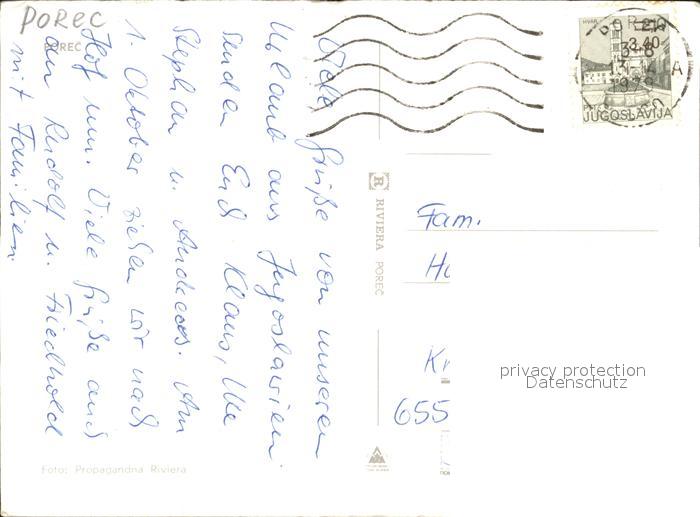 POREC
POREČ
Viele Grüße von unserem
Urlaub aus Jugoslawien
senden Euch Klaus, Ute
Stephan u. Andreas. Am
1. Oktober ziehen wir nach
Hof um. Viele Grüße auch
an Rudolf u. Friedhold
mit Familien.
Foto: Propagandna Riviera
R RIVIERA POREČ
HVAR
3.40
JUGOSLAVIJA
Fam.
655
privacy protection
Datenschutz